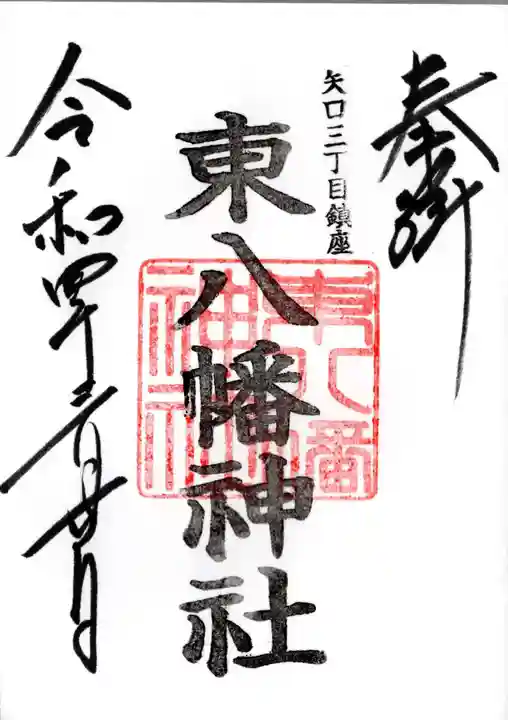 奉拝
矢口三丁目鎮座
東八幡神社
東八幡
神社
令和四年二月廿日